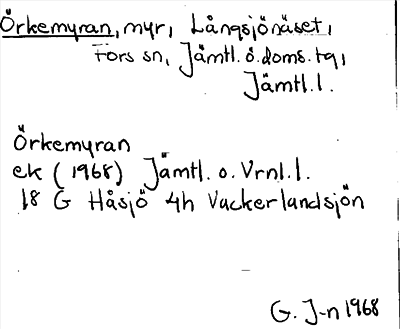 Örkemyran, myr, Långsjönäset,
Fors sn, Jämtl. ö. doms. tg,
Jämtl. l.
Örkemyran
ek (1968) Jämtl. o. Vrnl. l.
18 G Håsjö 4h Vackerlandsjön
G. J-n 1968